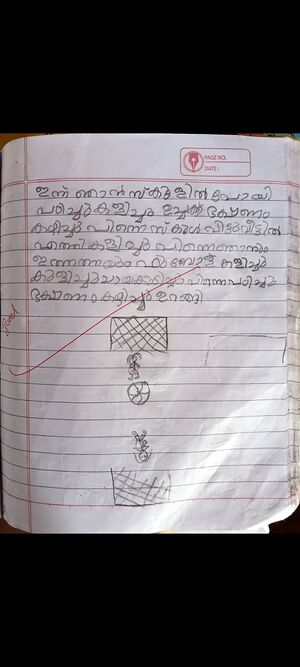 PAGE NO.
DATE:
ഇന്ന് ഞാൻ സ്കൂളിൽ പോയി
പഠിച്ചു കളിച്ചു ഉച്ചക്ക് ഭക്ഷണം
കഴിച്ചു പിന്നെ സ്കൂൾ വിട്ടു വീട്ടിൽ
എത്തി കളിച്ചു പിന്നെ ഞാനും
കളിച്ചു
കുളിച്ചു ചായകുടിച്ചു പിന്നെ പഠിച്ചു
ഭക്ഷണം കഴിച്ചു ഉറങ്ങി